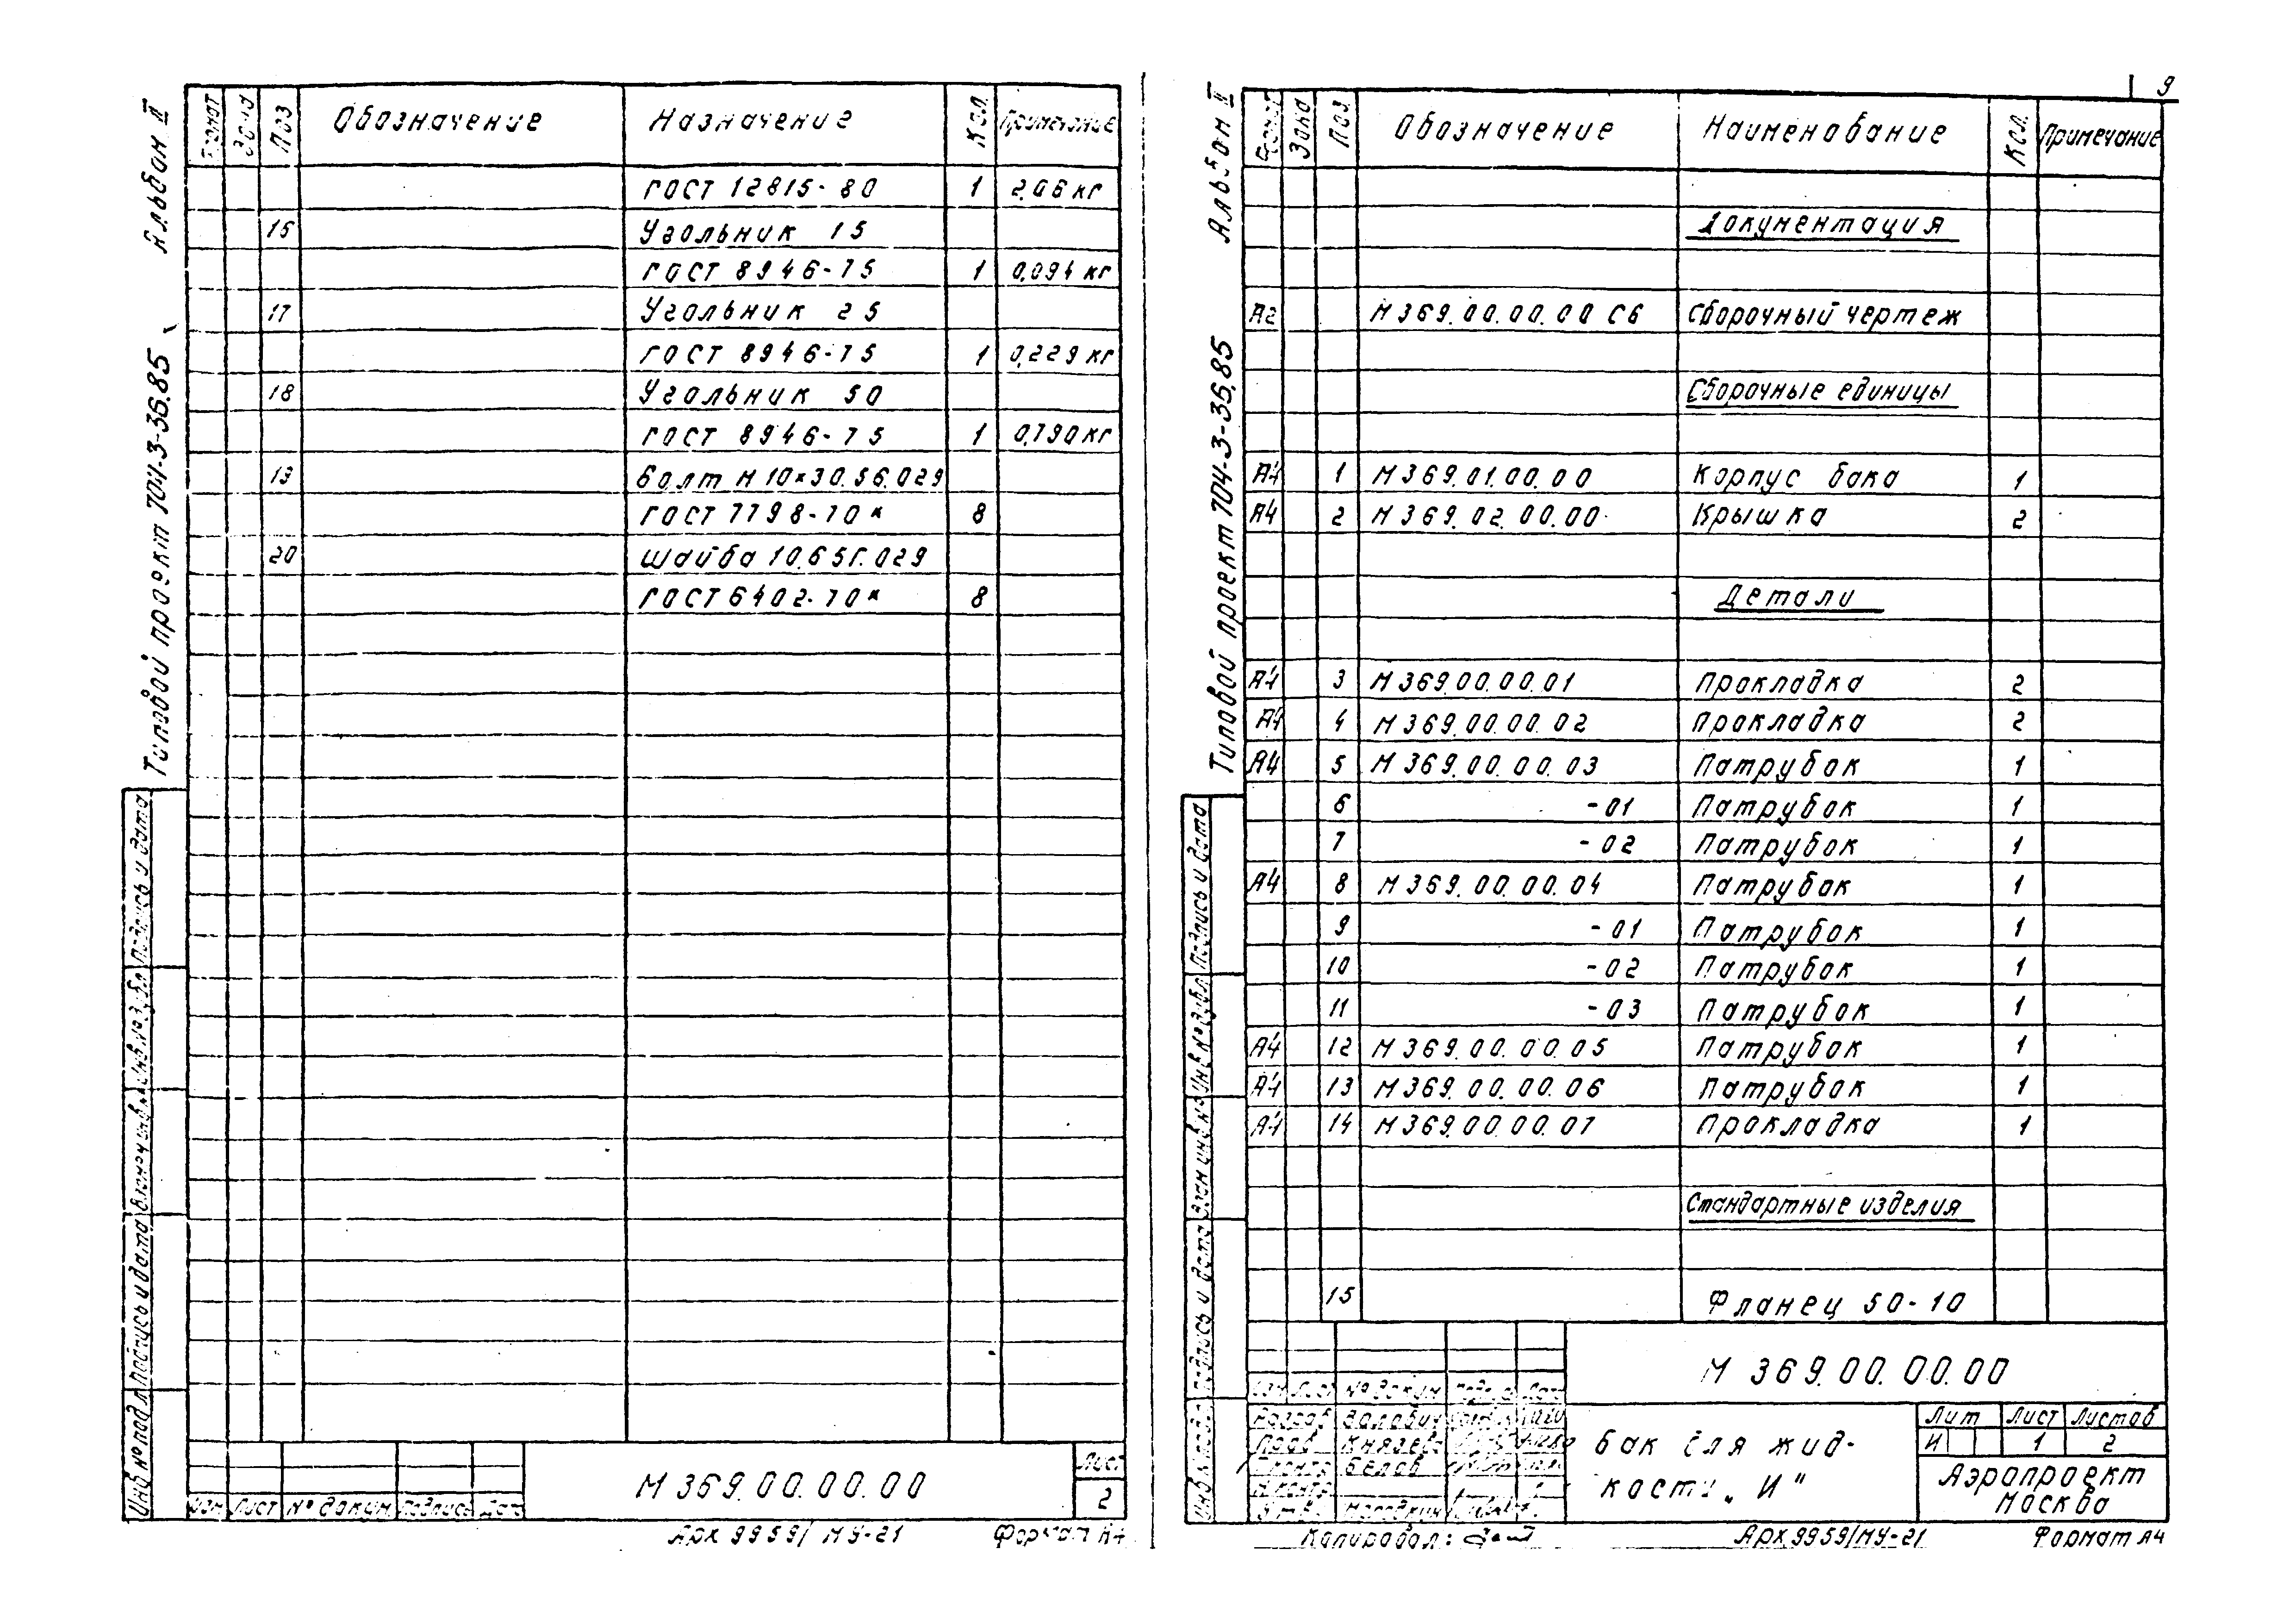 Альбом II
Типовой проект 704-3-36.85
Формат Зона Поз Обозначение Назначение Кол. Примечание
ГОСТ 12815-80 1 2,06 кг
16 Угольник 15
ГОСТ 8946-75 1 0,094 кг
17 Угольник 25
ГОСТ 8946-75 1 0,229 кг
18 Угольник 50
ГОСТ 8946-75 1 0,790 кг
19 Болт М10×30.56.029
ГОСТ 7798-70* 8
20 Шайба 10.65Г.029
ГОСТ 6402-70* 8
Подпись и дата
Подпись и дата
Инв № подл
Изм Лист № докум. Подпись Дата
М 369.00.00.00
Лист
2
Арх 9959/МУ-21 Формат А4
9
Альбом II
Типовой проект 704-3-36.85
Формат Зона Поз Обозначение Наименование Кол. Примечание
Документация
А2 М369.00.00.00 СБ Сборочный чертеж
Сборочные единицы
А4 1 М369.01.00.00 Корпус бака 1
А4 2 М369.02.00.00 Крышка 2
Детали
А4 3 М369.00.00.01 Прокладка 2
А4 4 М369.00.00.02 Прокладка 2
А4 5 М369.00.00.03 Патрубок 1
6 -01 Патрубок 1
7 -02 Патрубок 1
А4 8 М369.00.00.04 Патрубок 1
9 -01 Патрубок 1
10 -02 Патрубок 1
11 -03 Патрубок 1
А4 12 М369.00.00.05 Патрубок 1
А4 13 М369.00.00.06 Патрубок 1
А4 14 М369.00.00.07 Прокладка 1
Стандартные изделия
15 Фланец 50-10
Подпись и дата
Инв № дубл
Взам инв №
Подпись и дата
М 369.00.00.00
Изм Лист № докум Дата
Разраб
Пров Князева
Белов
Бак для жид-
кости „И"
Лит Лист Листов
И 1 2
Аэропроект
Москва
Копировал: Арх 9959/МУ-21 Формат А4